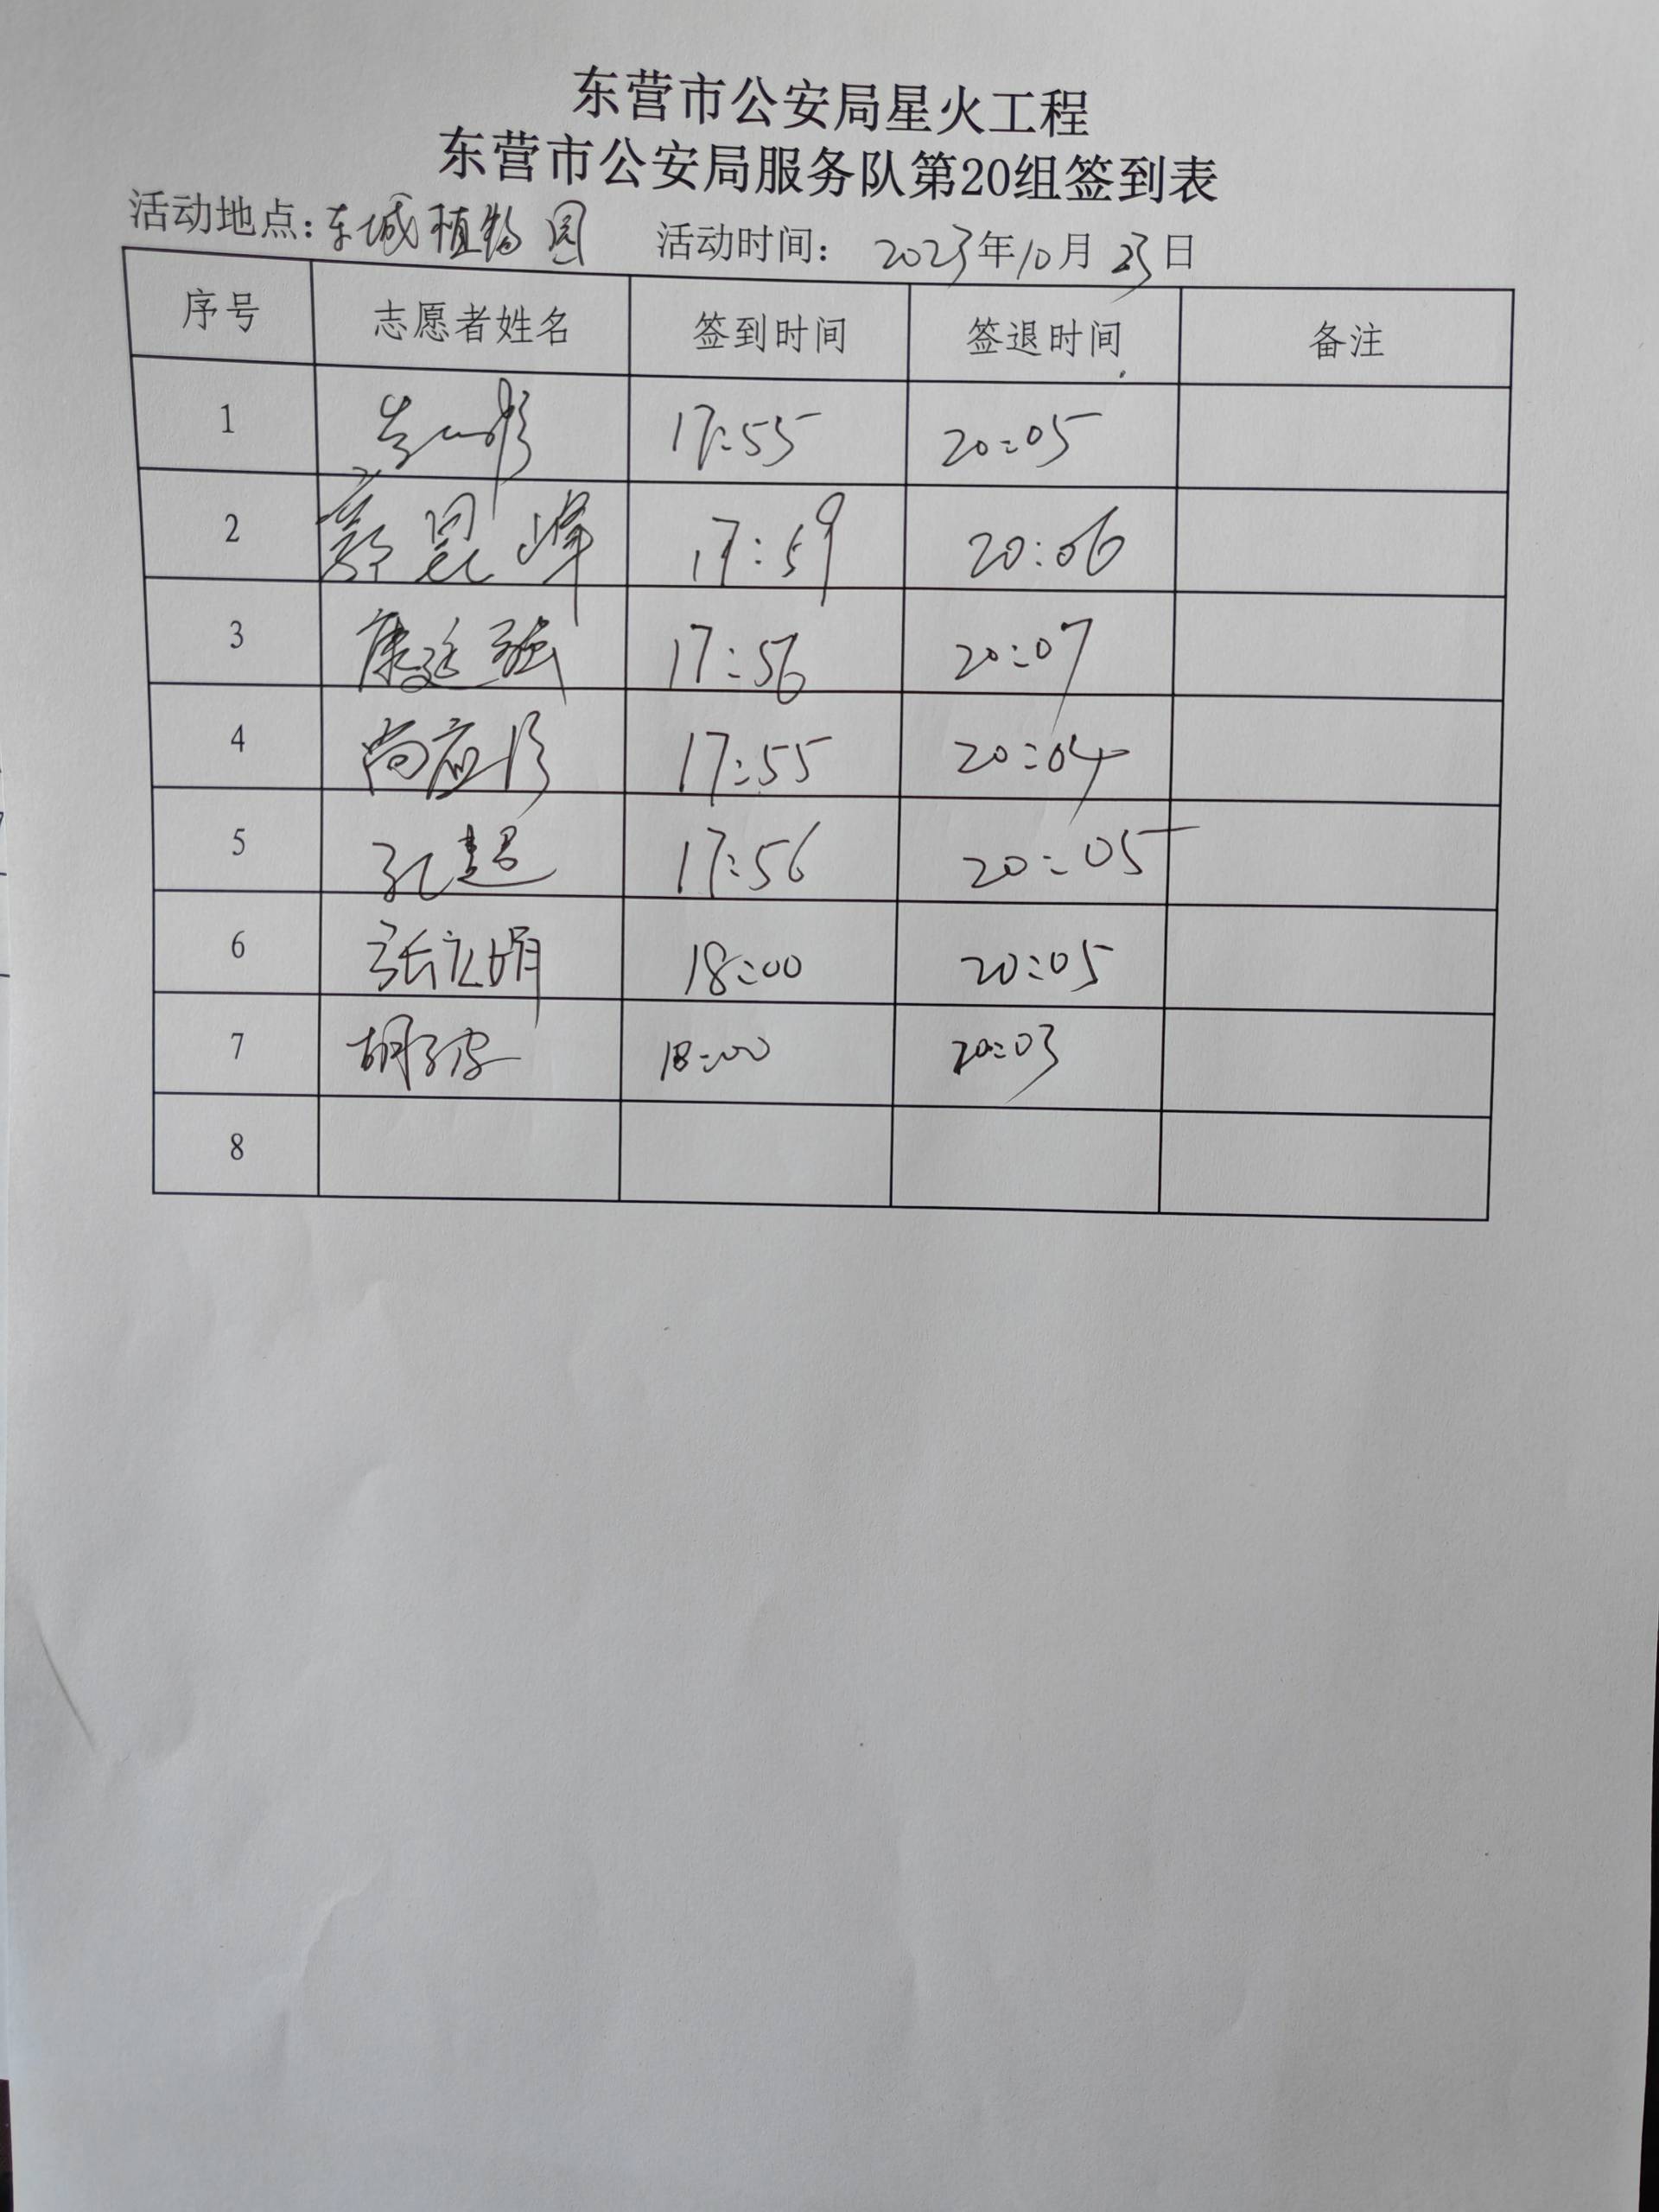 东营市公安局星火工程
东营市公安局服务队第20组签到表
活动地点：东城植物园 活动时间： 2023年10月23日
序号 志愿者姓名 签到时间 签退时间 备注
1 17:55 20:05
2 17:59 20:06
3 康延强 17:56 20:07
4 尚应 17:55 20:04
5 孔超 17:56 20:05
6 张立娟 18:00 20:05
7 胡 18:00 20:03
8